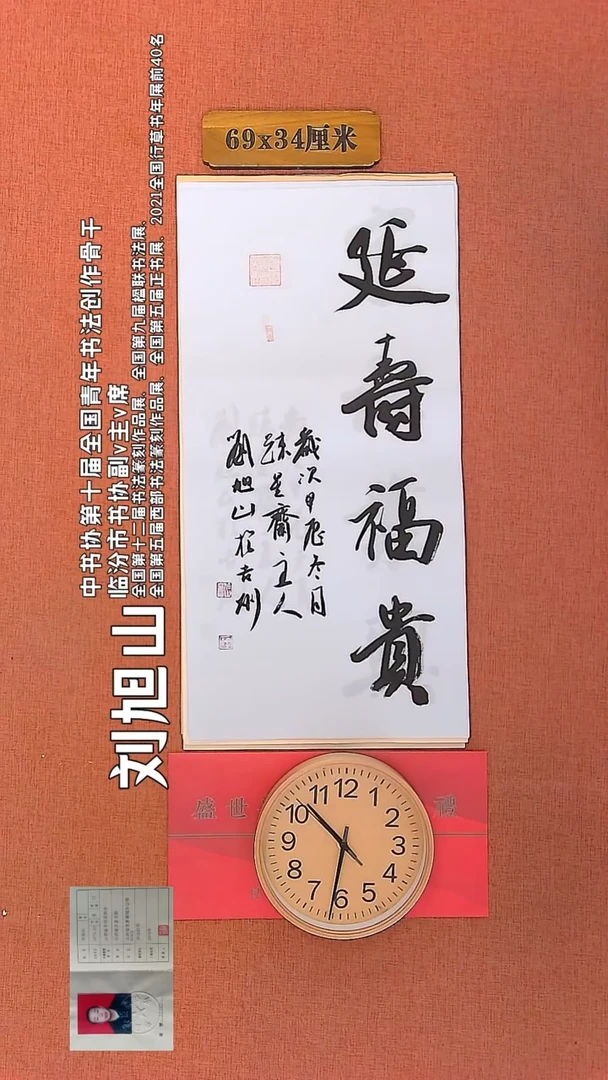 69x34厘米
延壽福貴
歲次甲辰冬月
主人
劉旭山於吉州
刘旭山
中书协第十届全国青年书法创作骨干
临汾市书协副v主v席
全国第十二届书法篆刻作品展、全国第九届楹联书法展、
全国第五届西部书法篆刻作品展、全国第五届正书展、2021全国行草书年展前40名
盛世
禮
12
1
2
3
4
5
6
7
8
9
10
11